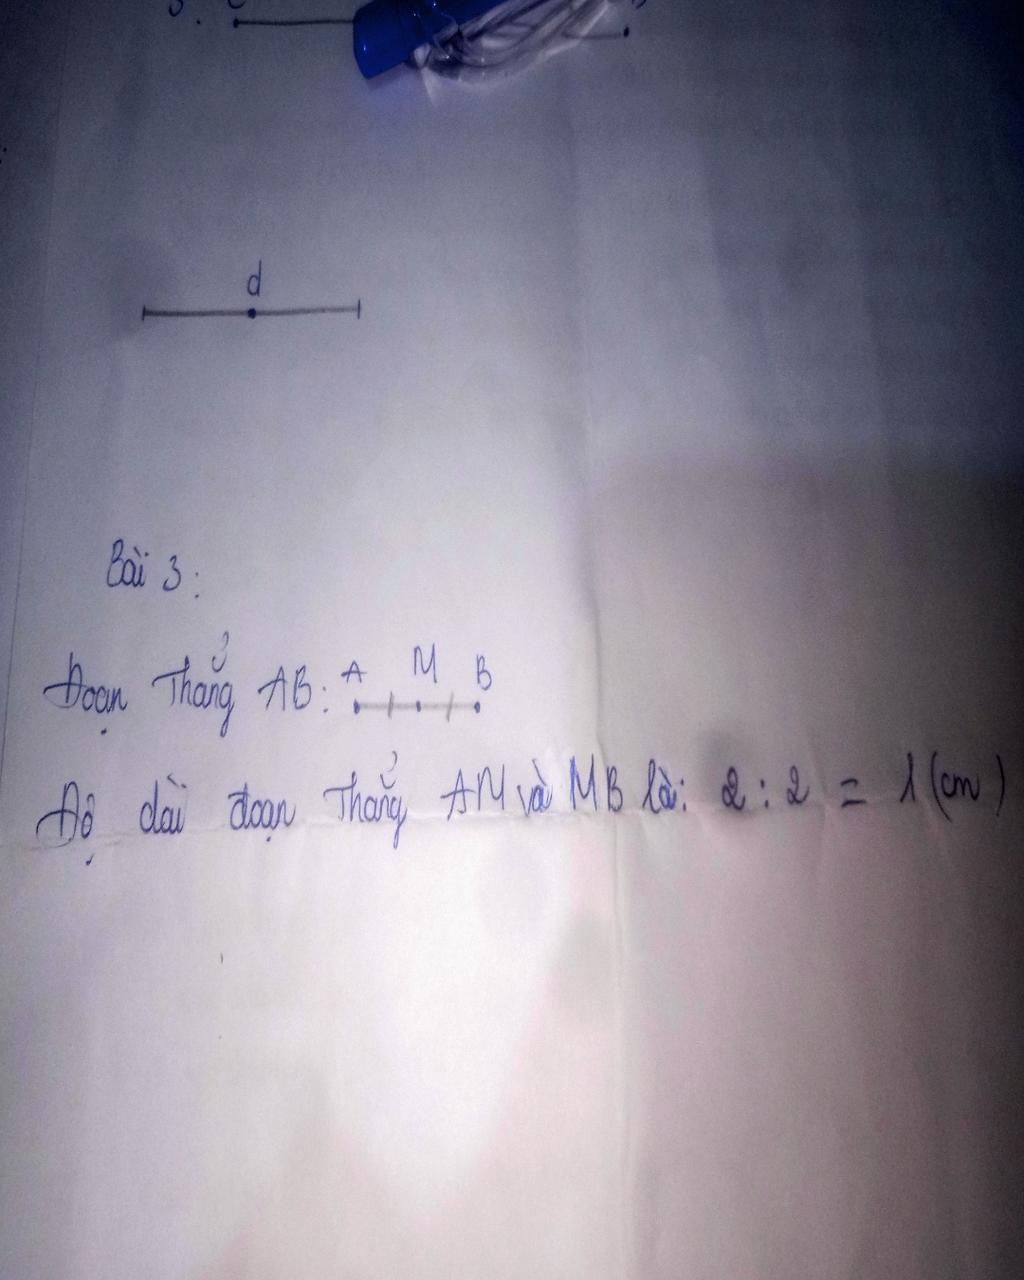 d
Bài 3:
Đoạn Thẳng AB: A M B
Độ dài đoạn Thẳng AM và MB là: 2 : 2 = 1 (cm)